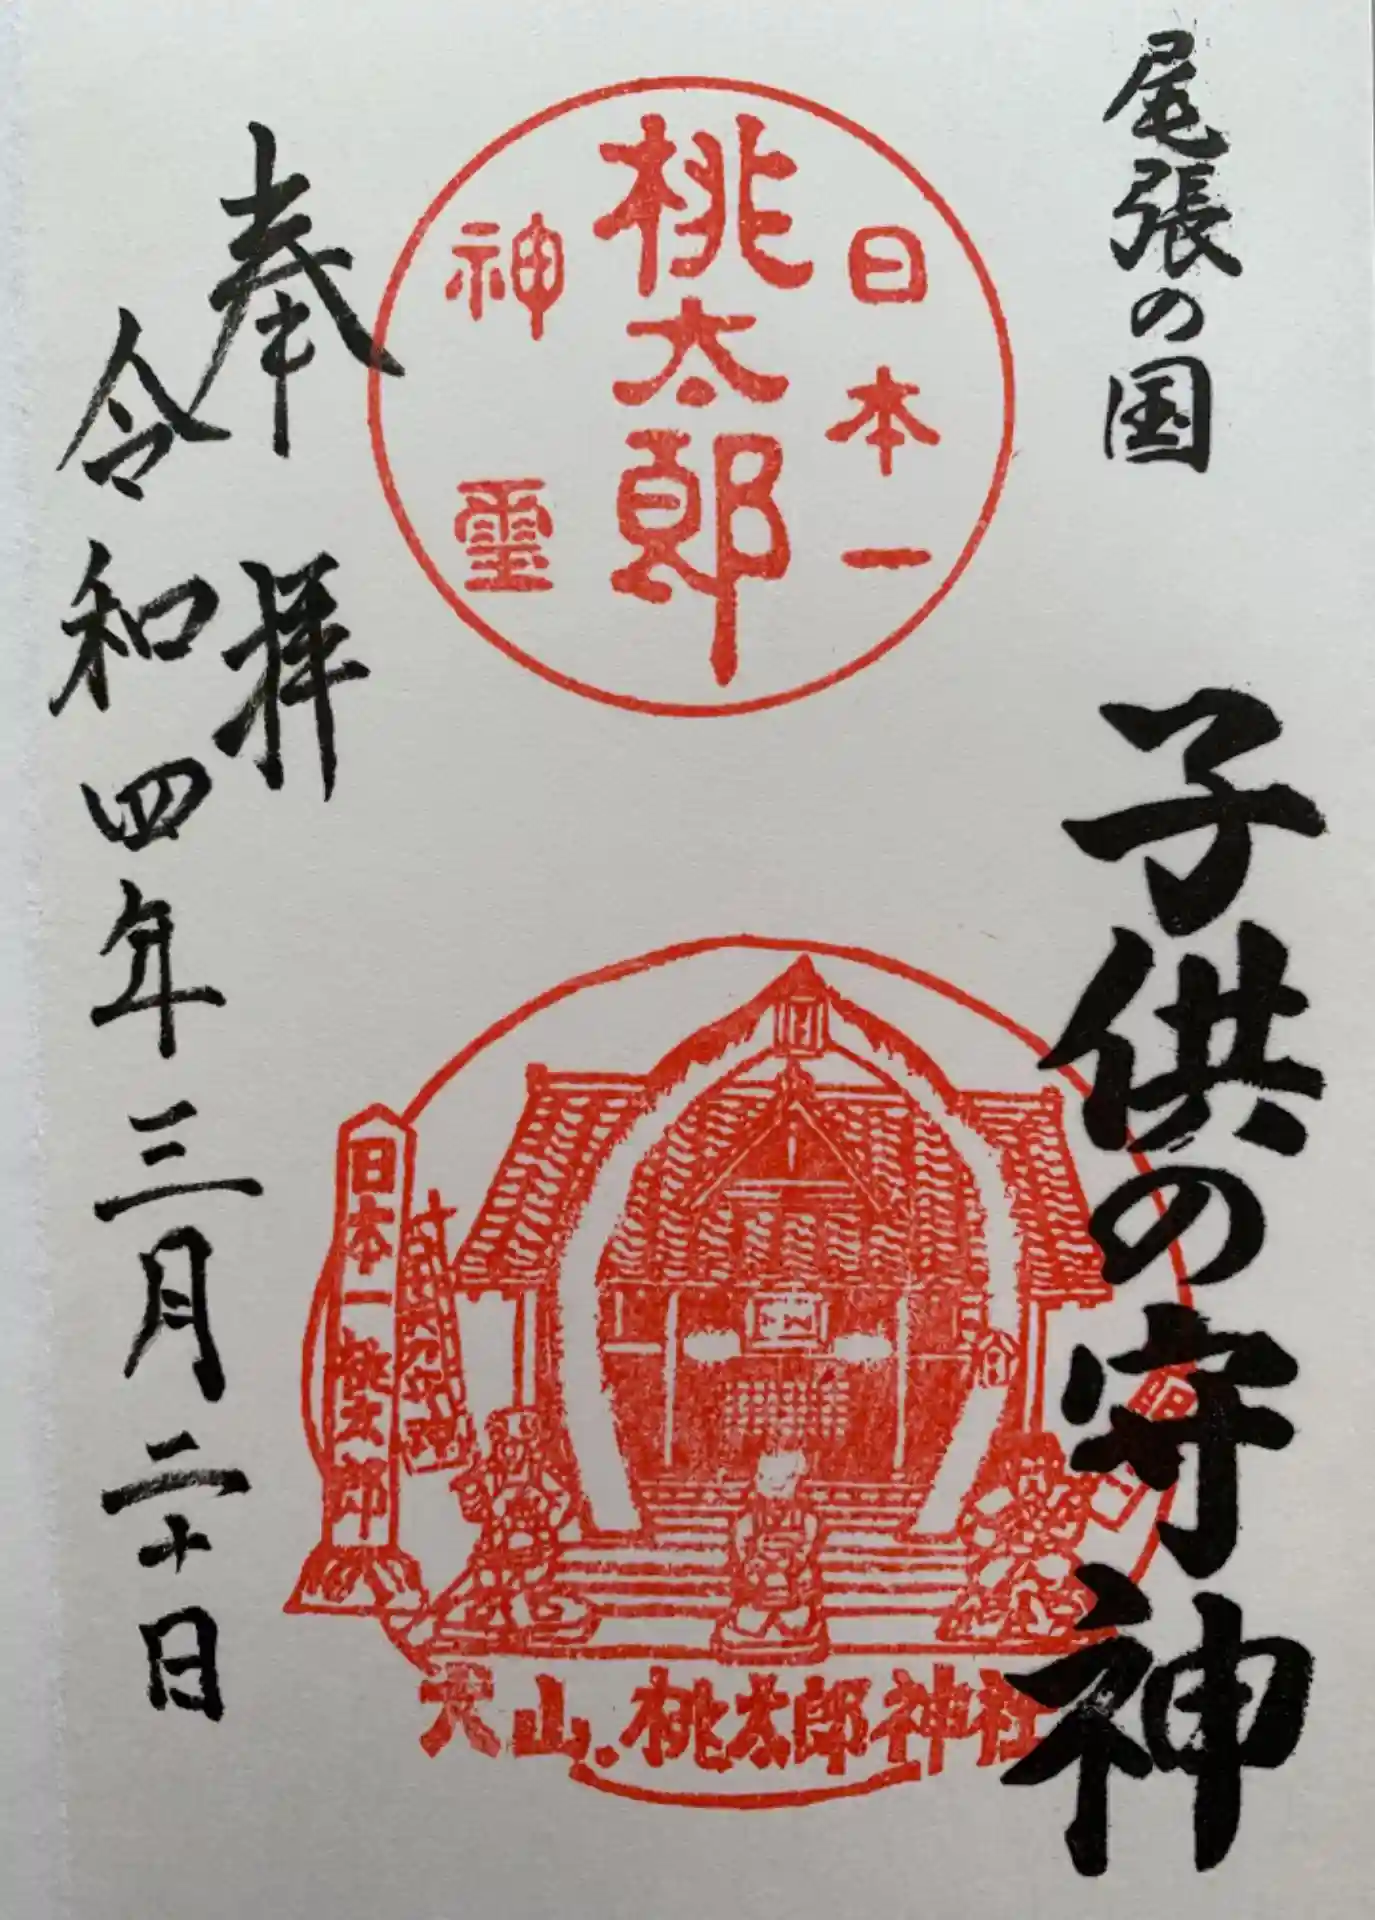 尾張の国
子供の守神
日本一
桃太郎
神霊
日本一桃太郎
犬山.桃太郎神社
奉拝
令和四年三月二十日